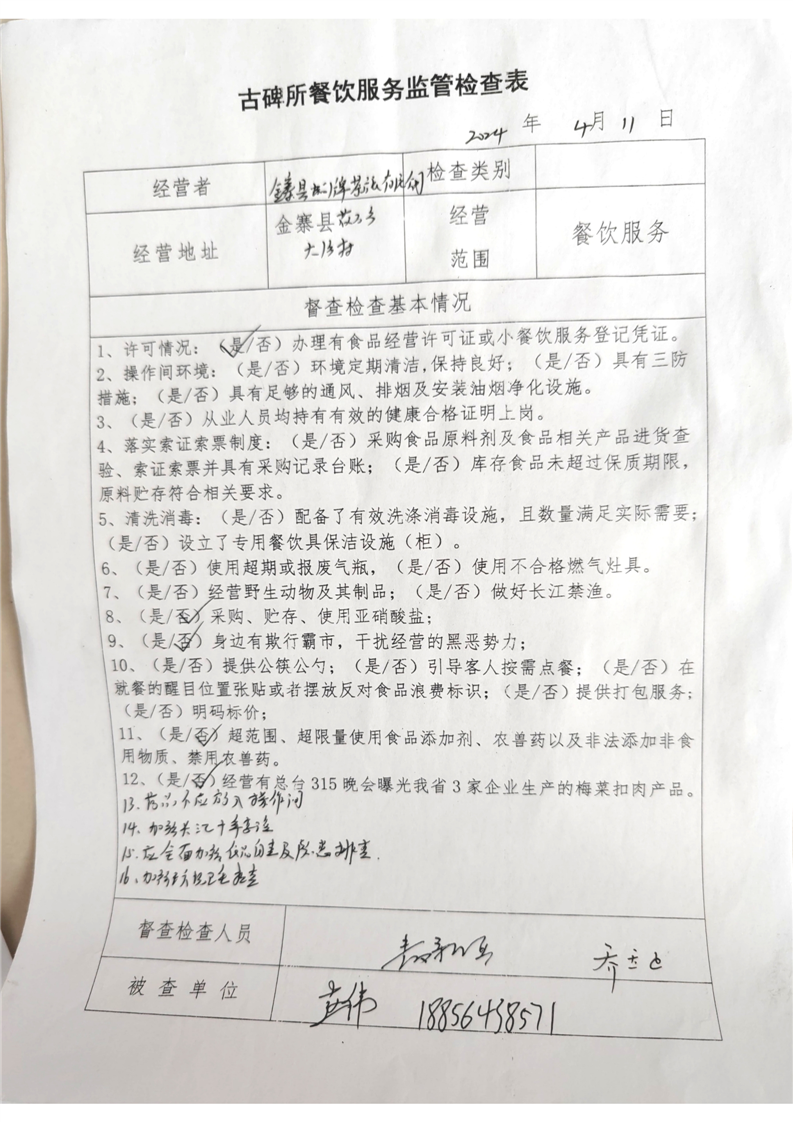 古碑所餐饮服务监管检查表
2024 年 4月 11 日
经营者 金寨县 检查类别
经营地址 金寨县 经营范围 餐饮服务
督查检查基本情况
1、许可情况：（是/否）办理有食品经营许可证或小餐饮服务登记凭证。
2、操作间环境：（是/否）环境定期清洁,保持良好；（是/否）具有三防
措施；（是/否）具有足够的通风、排烟及安装油烟净化设施。
3、（是/否）从业人员均持有有效的健康合格证明上岗。
4、落实索证索票制度：（是/否）采购食品原料剂及食品相关产品进货查
验、索证索票并具有采购记录台账；（是/否）库存食品未超过保质期限，
原料贮存符合相关要求。
5、清洗消毒：（是/否）配备了有效洗涤消毒设施，且数量满足实际需要；
（是/否）设立了专用餐饮具保洁设施（柜）。
6、（是/否）使用超期或报废气瓶，（是/否）使用不合格燃气灶具。
7、（是/否）经营野生动物及其制品；（是/否）做好长江禁渔。
8、（是/否）采购、贮存、使用亚硝酸盐；
9、（是/否）身边有欺行霸市，干扰经营的黑恶势力；
10、（是/否）提供公筷公勺；（是/否）引导客人按需点餐；（是/否）在
就餐的醒目位置张贴或者摆放反对食品浪费标识；（是/否）提供打包服务；
（是/否）明码标价；
11、（是/否）超范围、超限量使用食品添加剂、农兽药以及非法添加非食
用物质、禁用农兽药。
12、（是/否）经营有总台315晚会曝光我省3家企业生产的梅菜扣肉产品。
13.药品不应放入操作间
14.加强长江十年禁渔
15.应全面加强食品自查及隐患排查.
16.加强环境卫生检查
督查检查人员
被查单位 18856438571